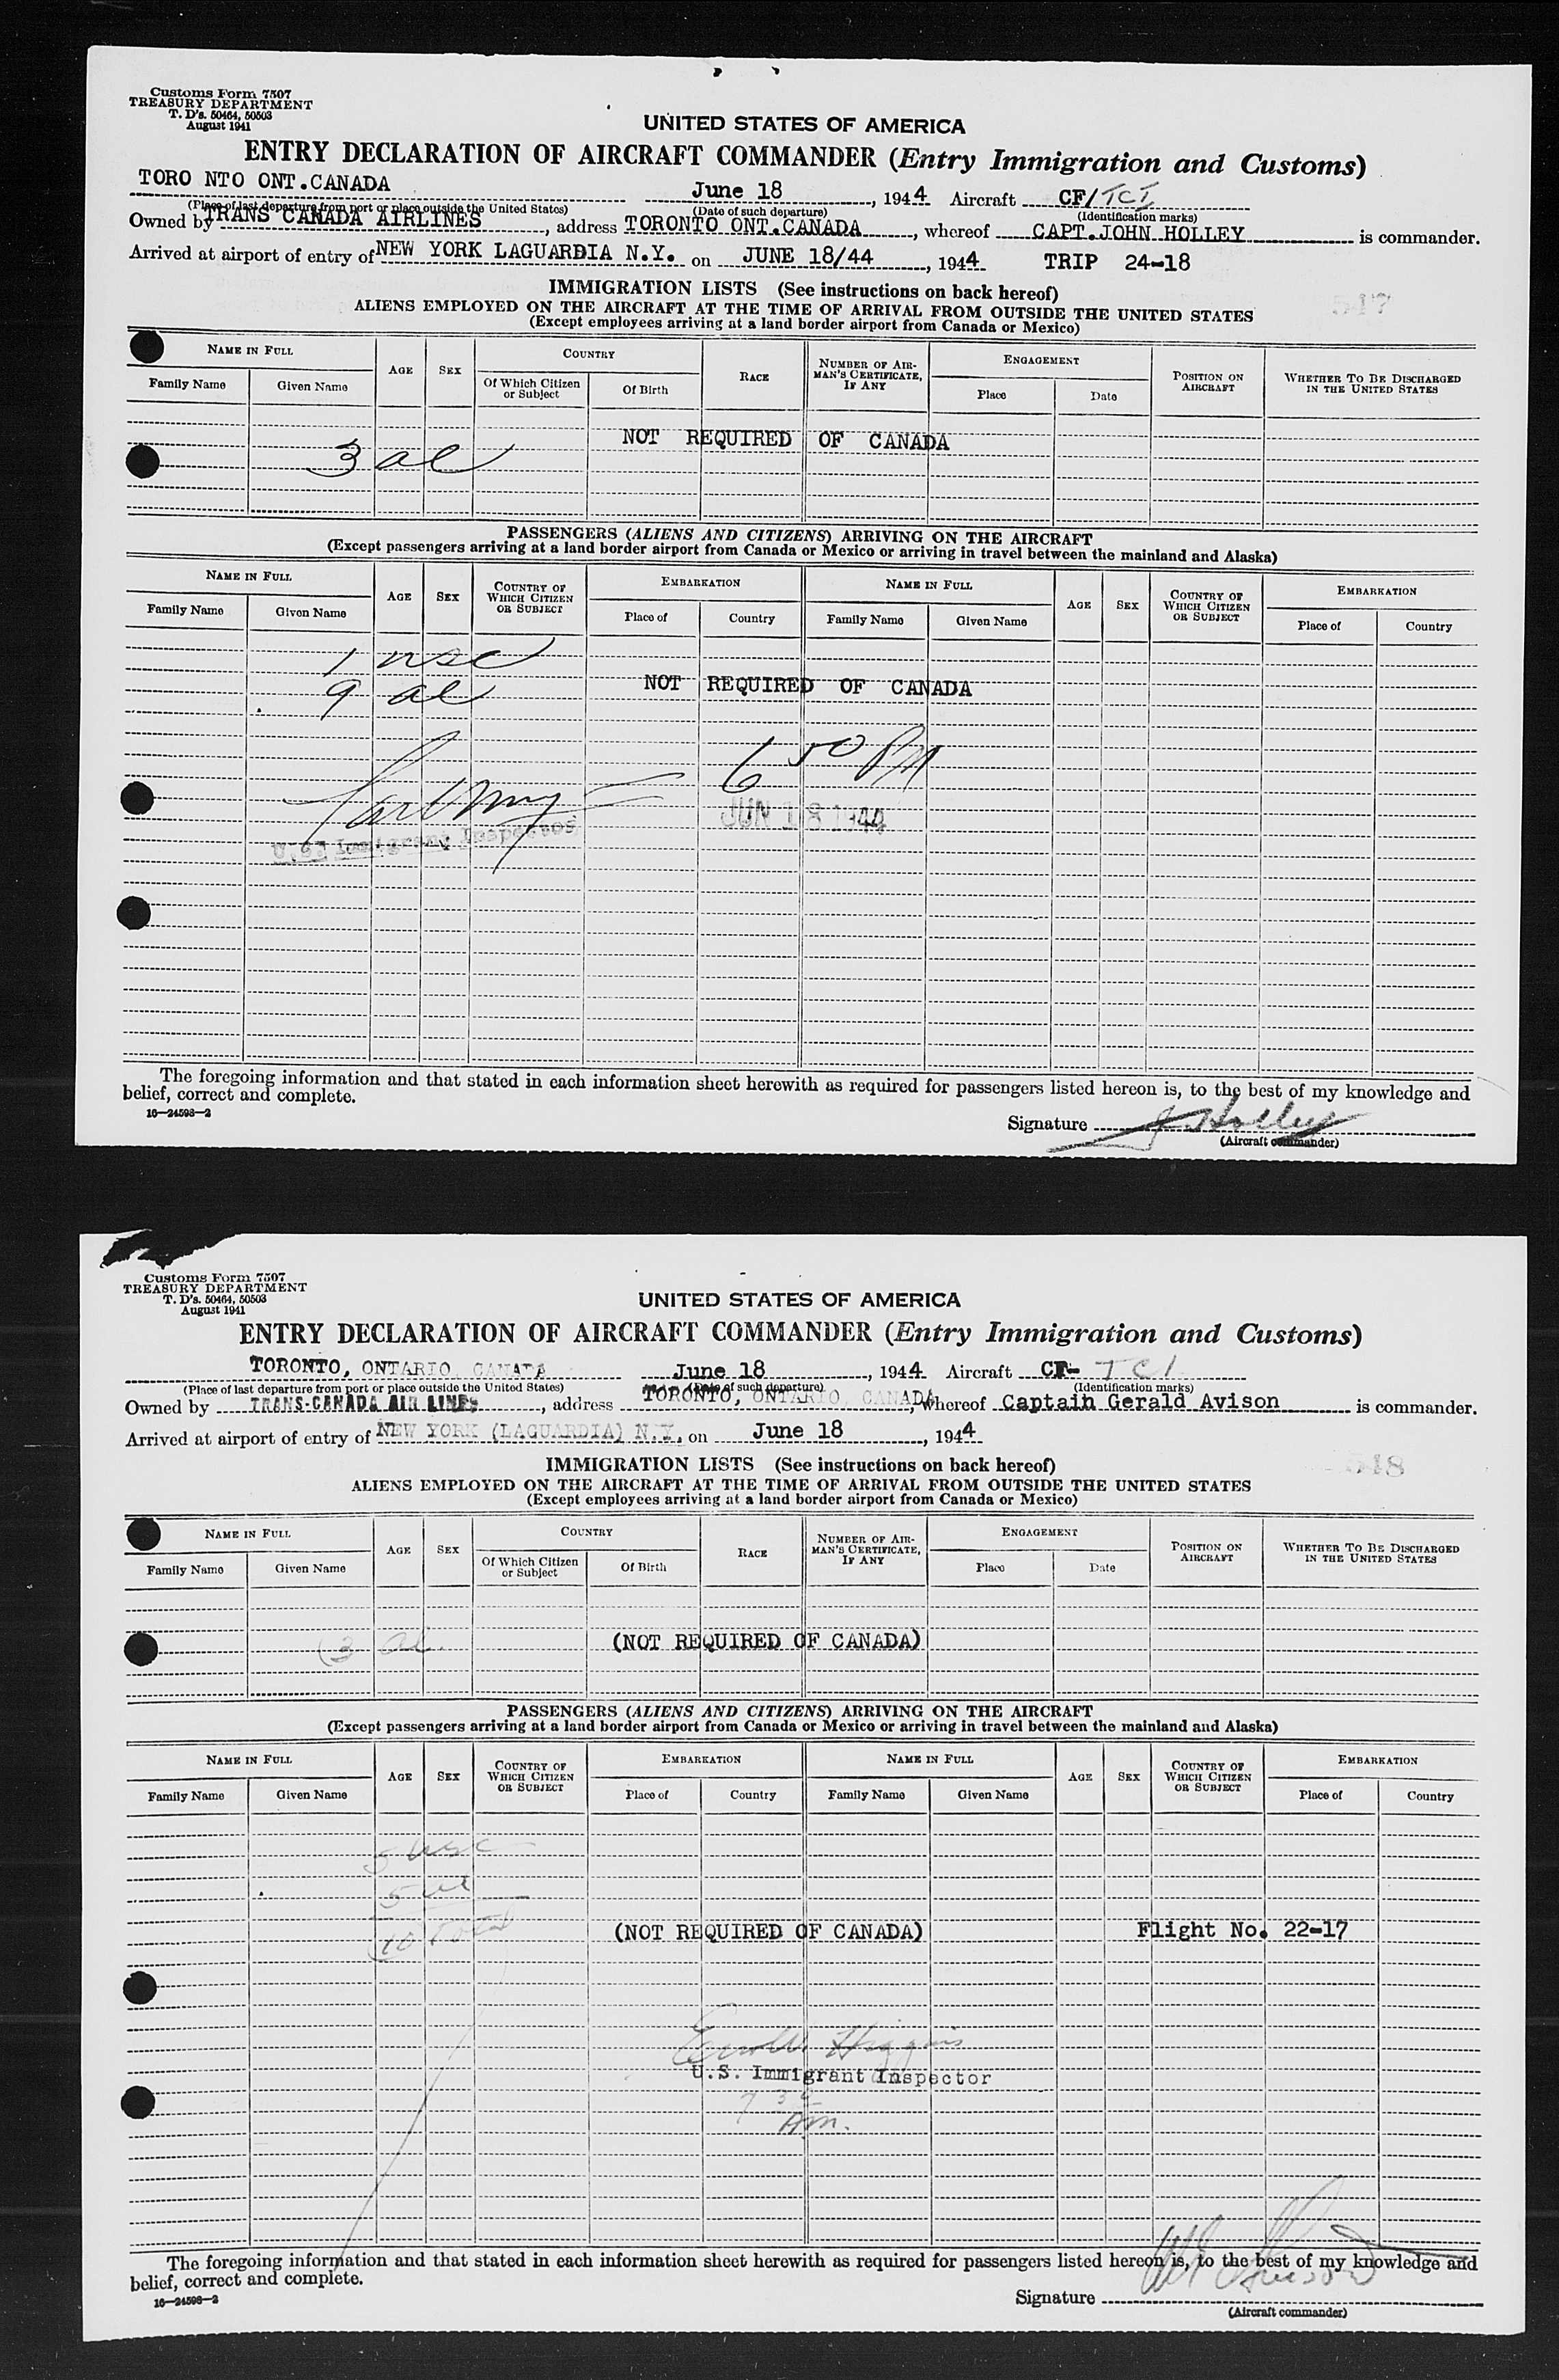 Customs Form 7507
TREASURY DEPARTMENT
T. D's. 50464, 50503
August 1941
UNITED STATES OF AMERICA
ENTRY DECLARATION OF AIRCRAFT COMMANDER (Entry Immigration and Customs)
TORO NTO ONT.CANADA June 18, 1944 Aircraft CF/TCI
(Place of last departure from port or place outside the United States) (Date of such departure) (Identification marks)
Owned by TRANS CANADA AIRLINES, address TORONTO ONT.CANADA, whereof CAPT.JOHN HOLLEY is commander.
Arrived at airport of entry of NEW YORK LAGUARDIA N.Y. on JUNE 18/44, 1944 TRIP 24-18
IMMIGRATION LISTS (See instructions on back hereof)
517
ALIENS EMPLOYED ON THE AIRCRAFT AT THE TIME OF ARRIVAL FROM OUTSIDE THE UNITED STATES
(Except employees arriving at a land border airport from Canada or Mexico)
NAME IN FULL AGE SEX COUNTRY RACE NUMBER OF AIRMAN'S CERTIFICATE, IF ANY ENGAGEMENT POSITION ON AIRCRAFT WHETHER TO BE DISCHARGED IN THE UNITED STATES
Family Name Given Name Of Which Citizen or Subject Of Birth Place Date
NOT REQUIRED OF CANADA
3 al
PASSENGERS (ALIENS AND CITIZENS) ARRIVING ON THE AIRCRAFT
(Except passengers arriving at a land border airport from Canada or Mexico or arriving in travel between the mainland and Alaska)
NAME IN FULL AGE SEX COUNTRY OF WHICH CITIZEN OR SUBJECT EMBARKATION NAME IN FULL AGE SEX COUNTRY OF WHICH CITIZEN OR SUBJECT EMBARKATION
Family Name Given Name Place of Country Family Name Given Name Place of Country
1 usc
9 al NOT REQUIRED OF CANADA
6 50 PM
JUN 18 1944
U.S. Immigrant Inspector
The foregoing information and that stated in each information sheet herewith as required for passengers listed hereon is, to the best of my knowledge and
belief, correct and complete.
16—24598-2
Signature J Holley
(Aircraft commander)
Customs Form 7507
TREASURY DEPARTMENT
T. D's. 50464, 50503
August 1941
UNITED STATES OF AMERICA
ENTRY DECLARATION OF AIRCRAFT COMMANDER (Entry Immigration and Customs)
TORONTO, ONTARIO CANADA June 18, 1944 Aircraft CF- TCI
(Place of last departure from port or place outside the United States) (Date of such departure) (Identification marks)
Owned by TRANS-CANADA AIR LINES, address TORONTO, ONTARIO, CANADA, whereof Captain Gerald Avison is commander.
Arrived at airport of entry of NEW YORK (LAGUARDIA) N.Y. on June 18, 1944
IMMIGRATION LISTS (See instructions on back hereof)
518
ALIENS EMPLOYED ON THE AIRCRAFT AT THE TIME OF ARRIVAL FROM OUTSIDE THE UNITED STATES
(Except employees arriving at a land border airport from Canada or Mexico)
NAME IN FULL AGE SEX COUNTRY RACE NUMBER OF AIRMAN'S CERTIFICATE, IF ANY ENGAGEMENT POSITION ON AIRCRAFT WHETHER TO BE DISCHARGED IN THE UNITED STATES
Family Name Given Name Of Which Citizen or Subject Of Birth Place Date
(3 al. (NOT REQUIRED OF CANADA)
PASSENGERS (ALIENS AND CITIZENS) ARRIVING ON THE AIRCRAFT
(Except passengers arriving at a land border airport from Canada or Mexico or arriving in travel between the mainland and Alaska)
NAME IN FULL AGE SEX COUNTRY OF WHICH CITIZEN OR SUBJECT EMBARKATION NAME IN FULL AGE SEX COUNTRY OF WHICH CITIZEN OR SUBJECT EMBARKATION
Family Name Given Name Place of Country Family Name Given Name Place of Country
5 usc
5 al
10 Total (NOT REQUIRED OF CANADA) Flight No. 22-17
Higgins
U.S. Immigrant Inspector
7 30
AM.
The foregoing information and that stated in each information sheet herewith as required for passengers listed hereon is, to the best of my knowledge and
belief, correct and complete.
16—24598-2
Signature
(Aircraft commander)